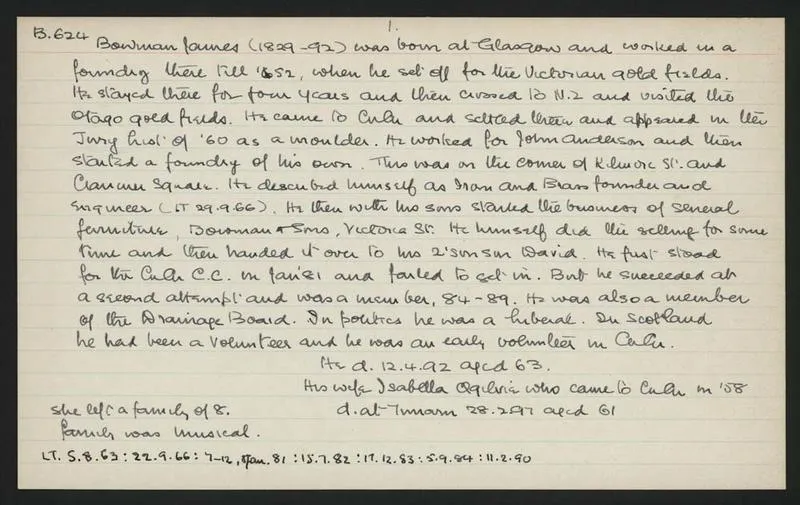 1.
B.624 Bowman James (1829-92) was born at Glasgow and worked in a
foundry there till 1852, when he set off for the Victorian gold fields.
He stayed there for four years and then crossed to N.Z and visited the
Otago gold fields. He came to ChCh and settled there and appeared in the
Jury list of '60 as a moulder. He worked for John Anderson and then
started a foundry of his own. This was on the corner of Kilmore St. and
Cranmer Square. He described himself as Iron and Brass founder and
Engineer (LT 29.9.66). He then with his sons started the business of general
furniture, Bowman & Sons, Victoria St. He himself did the selling for some
time and then handed it over to his son David. He first stood
for the ChCh C.C. in Jan 81 and failed to get in. But he succeeded at
a second attempt and was a member, 84-89. He was also a member
of the Drainage Board. In politics he was a liberal. In Scotland
he had been a Volunteer and he was an early volunteer in ChCh.
He d. 12.4.92 aged 63.
His wife Isabella Ogilvie who came to ChCh in '58
she left a family of 8. d. at 28.2.97 aged 61
family was musical.
LT. 5.8.63 : 22.9.66 : 7-12, Jan. 81 : 15.7.82 : 17.12.83 : 5.9.84 : 11.2.90